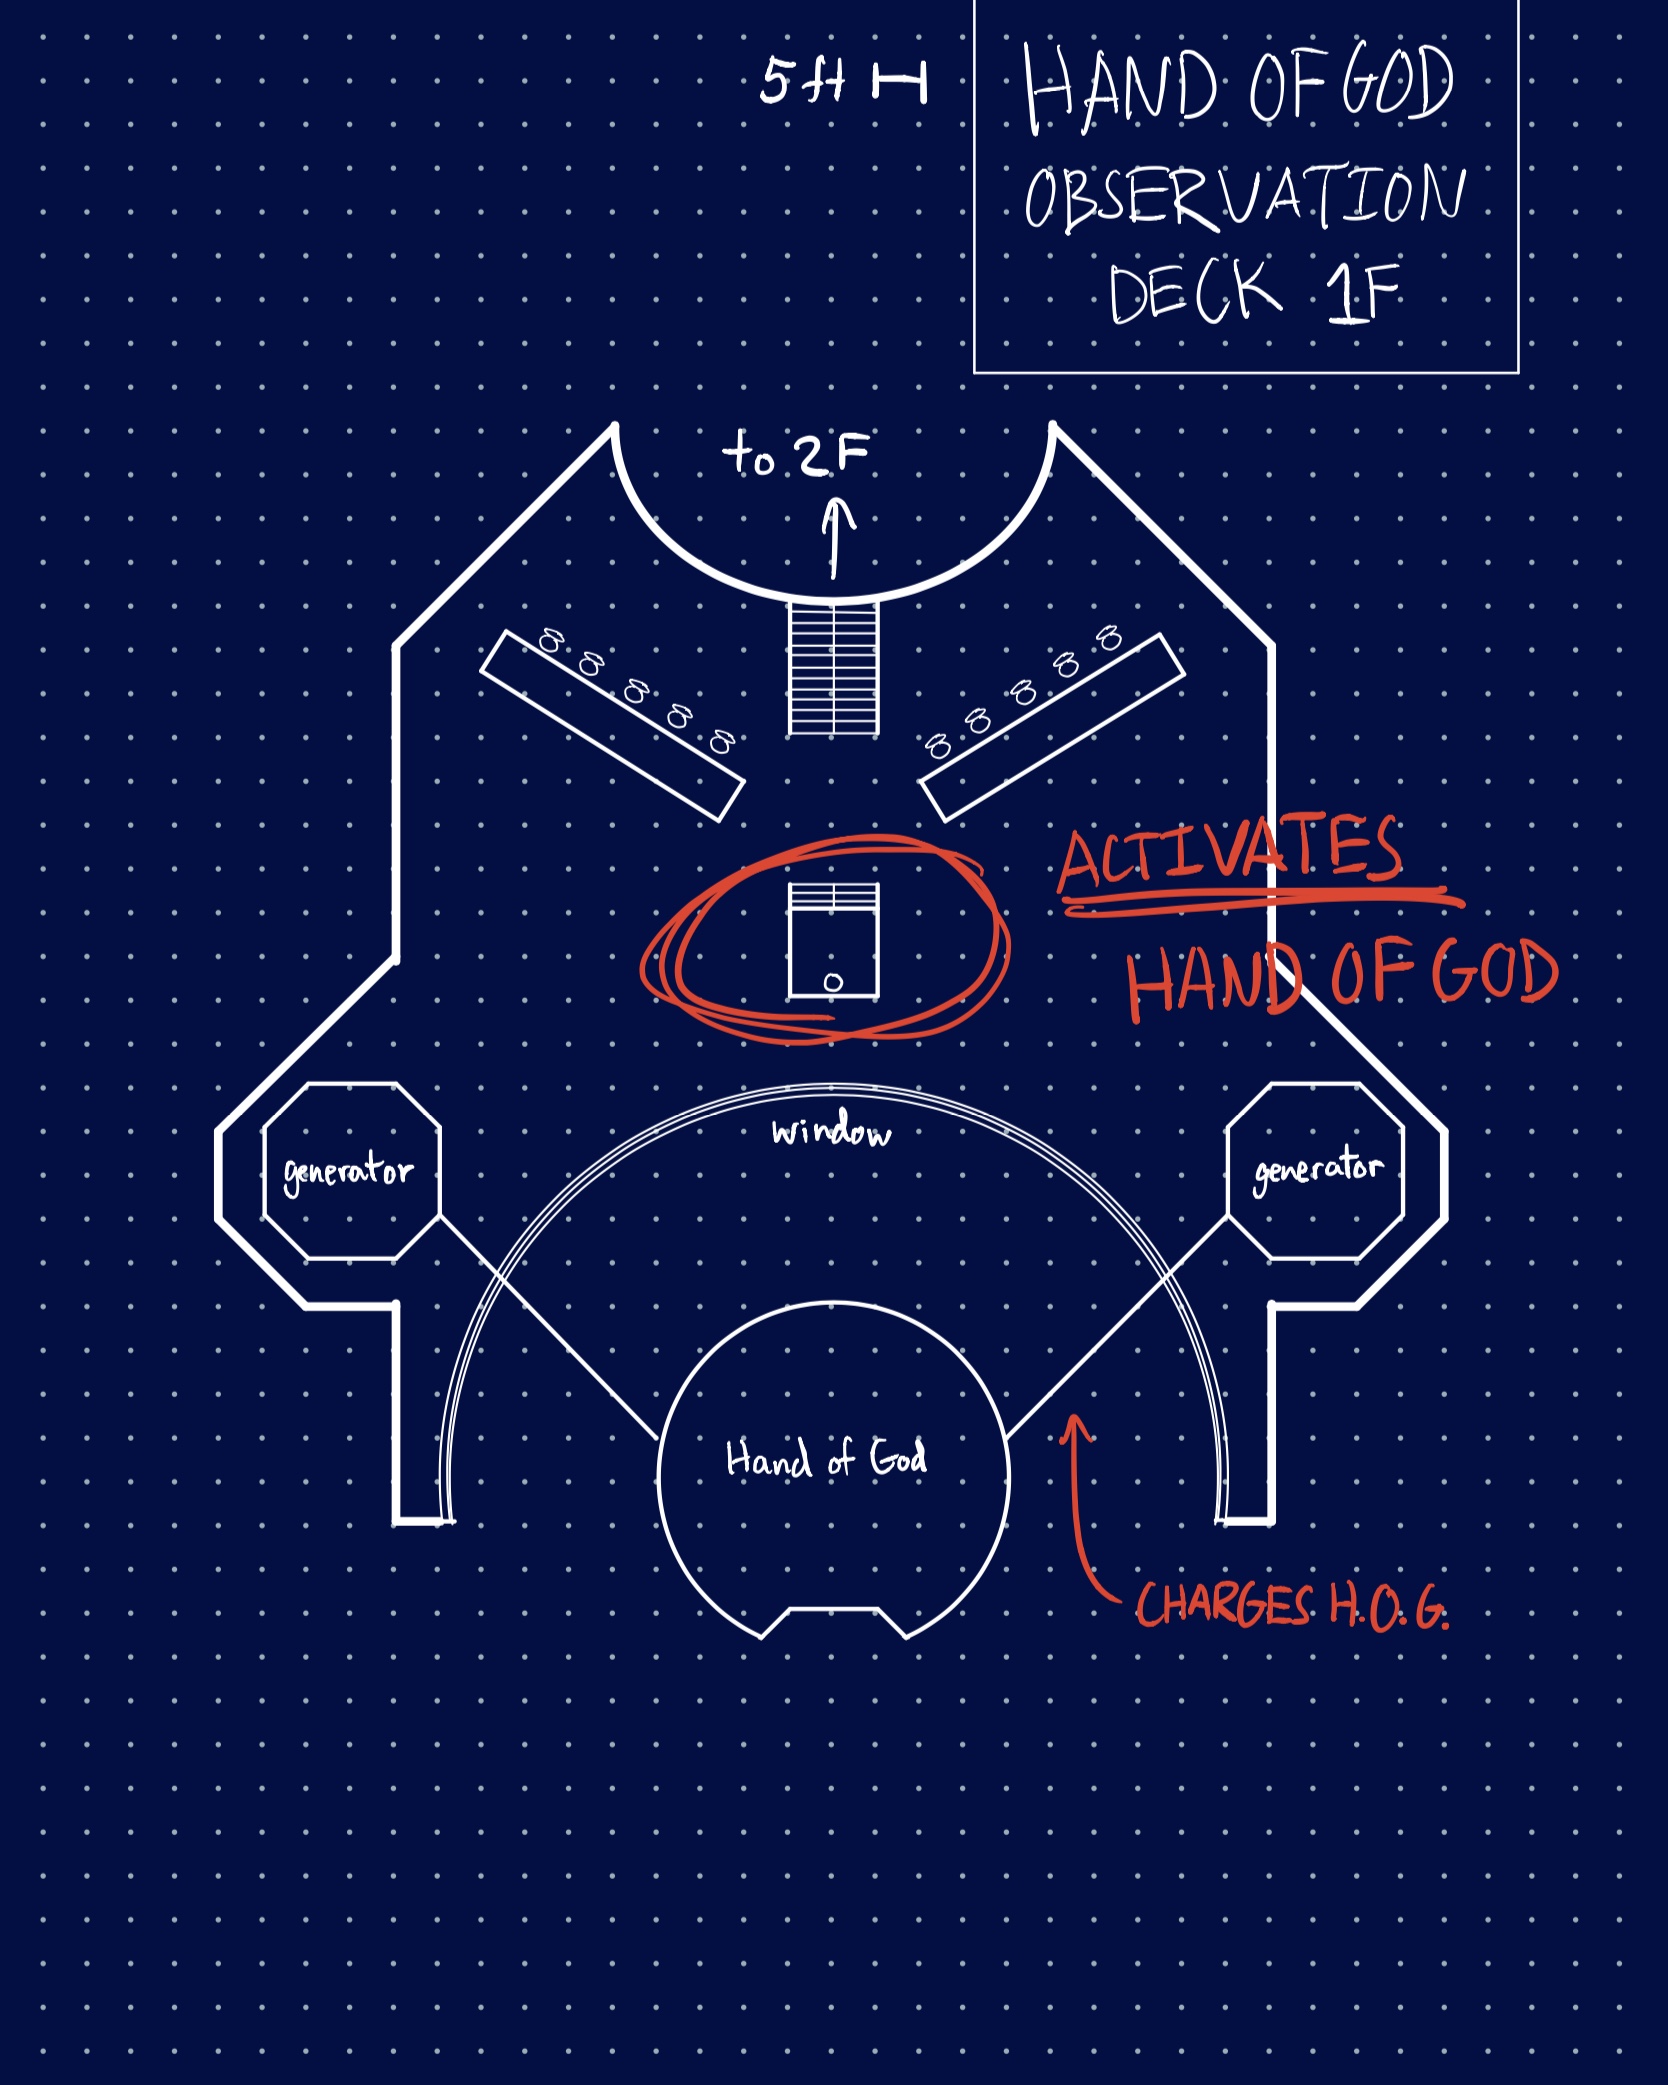 5ft
HAND OF GOD
OBSERVATION
DECK 1F
to 2F
ACTIVATES
HAND OF GOD
window
generator
generator
Hand of God
CHARGES H.O.G.